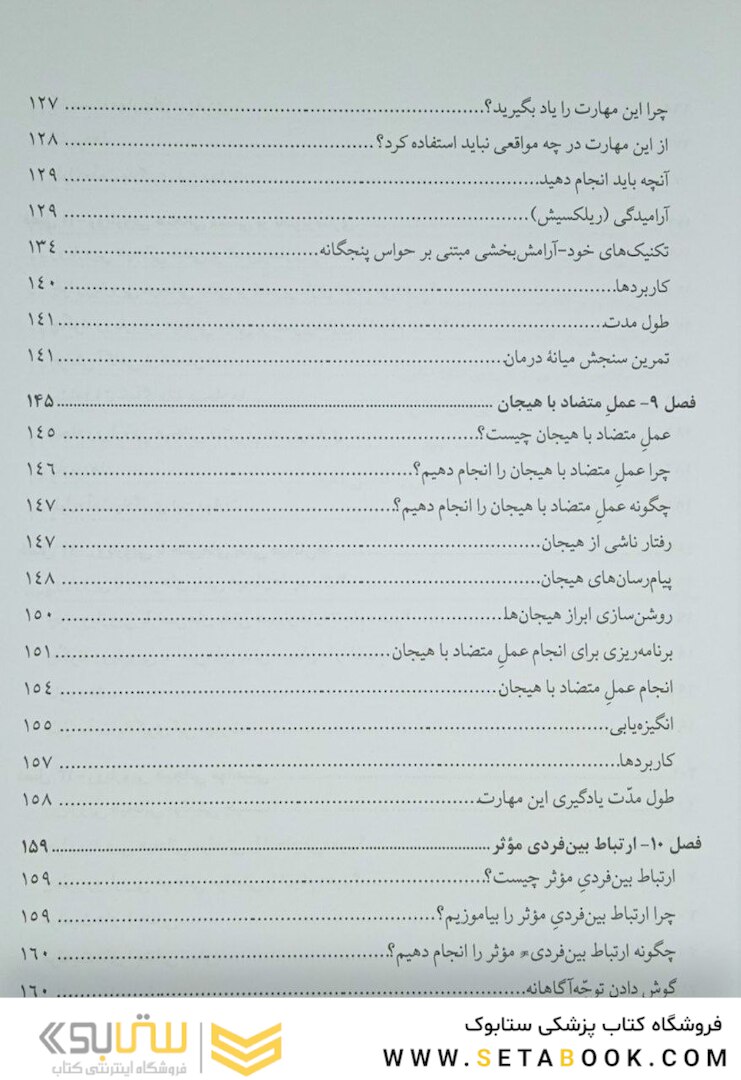 چرا این مهارت را یاد بگیرید؟ ۱۲۷
از این مهارت در چه مواقعی نباید استفاده کرد؟ ۱۲۸
آنچه باید انجام دهید ۱۲۹
آرامیدگی (ریلکسیش) ۱۲۹
تکنیک‌های خود-آرامش‌بخشی مبتنی بر حواس پنجگانه ۱۳٤
کاربردها ۱٤۰
طول مدت ۱٤۱
تمرین سنجش میانهٔ درمان ۱٤۱
فصل ۹- عملِ متضاد با هیجان ۱۴۵
عملِ متضاد با هیجان چیست؟ ۱٤٥
چرا عملِ متضاد با هیجان را انجام دهیم؟ ۱٤٦
چگونه عملِ متضاد با هیجان را انجام دهیم؟ ۱٤۷
رفتار ناشی از هیجان ۱٤۷
پیام‌رسان‌های هیجان ۱٤۸
روشن‌سازی ابراز هیجان‌ها ۱٥۰
برنامه‌ریزی برای انجام عملِ متضاد با هیجان ۱٥۱
انجام عملِ متضاد با هیجان ۱٥٤
انگیزه‌یابی ۱٥٥
کاربردها ۱٥۷
طول مدّت یادگیری این مهارت ۱٥۸
فصل ۱۰- ارتباط بین‌فردی مؤثر ۱۵۹
ارتباط بین‌فردیِ مؤثر چیست؟ ۱٥۹
چرا ارتباط بین‌فردیِ مؤثر را بیاموزیم؟ ۱٥۹
چگونه ارتباط بین‌فردیِ مؤثر را انجام دهیم؟ ۱٦۰
گوش دادن توجّه‌آگاهانه ۱٦۰
فروشگاه کتاب پزشکی ستابوک
WWW.SETABOOK.COM
ستابوک
فروشگاه اینترنتی کتاب